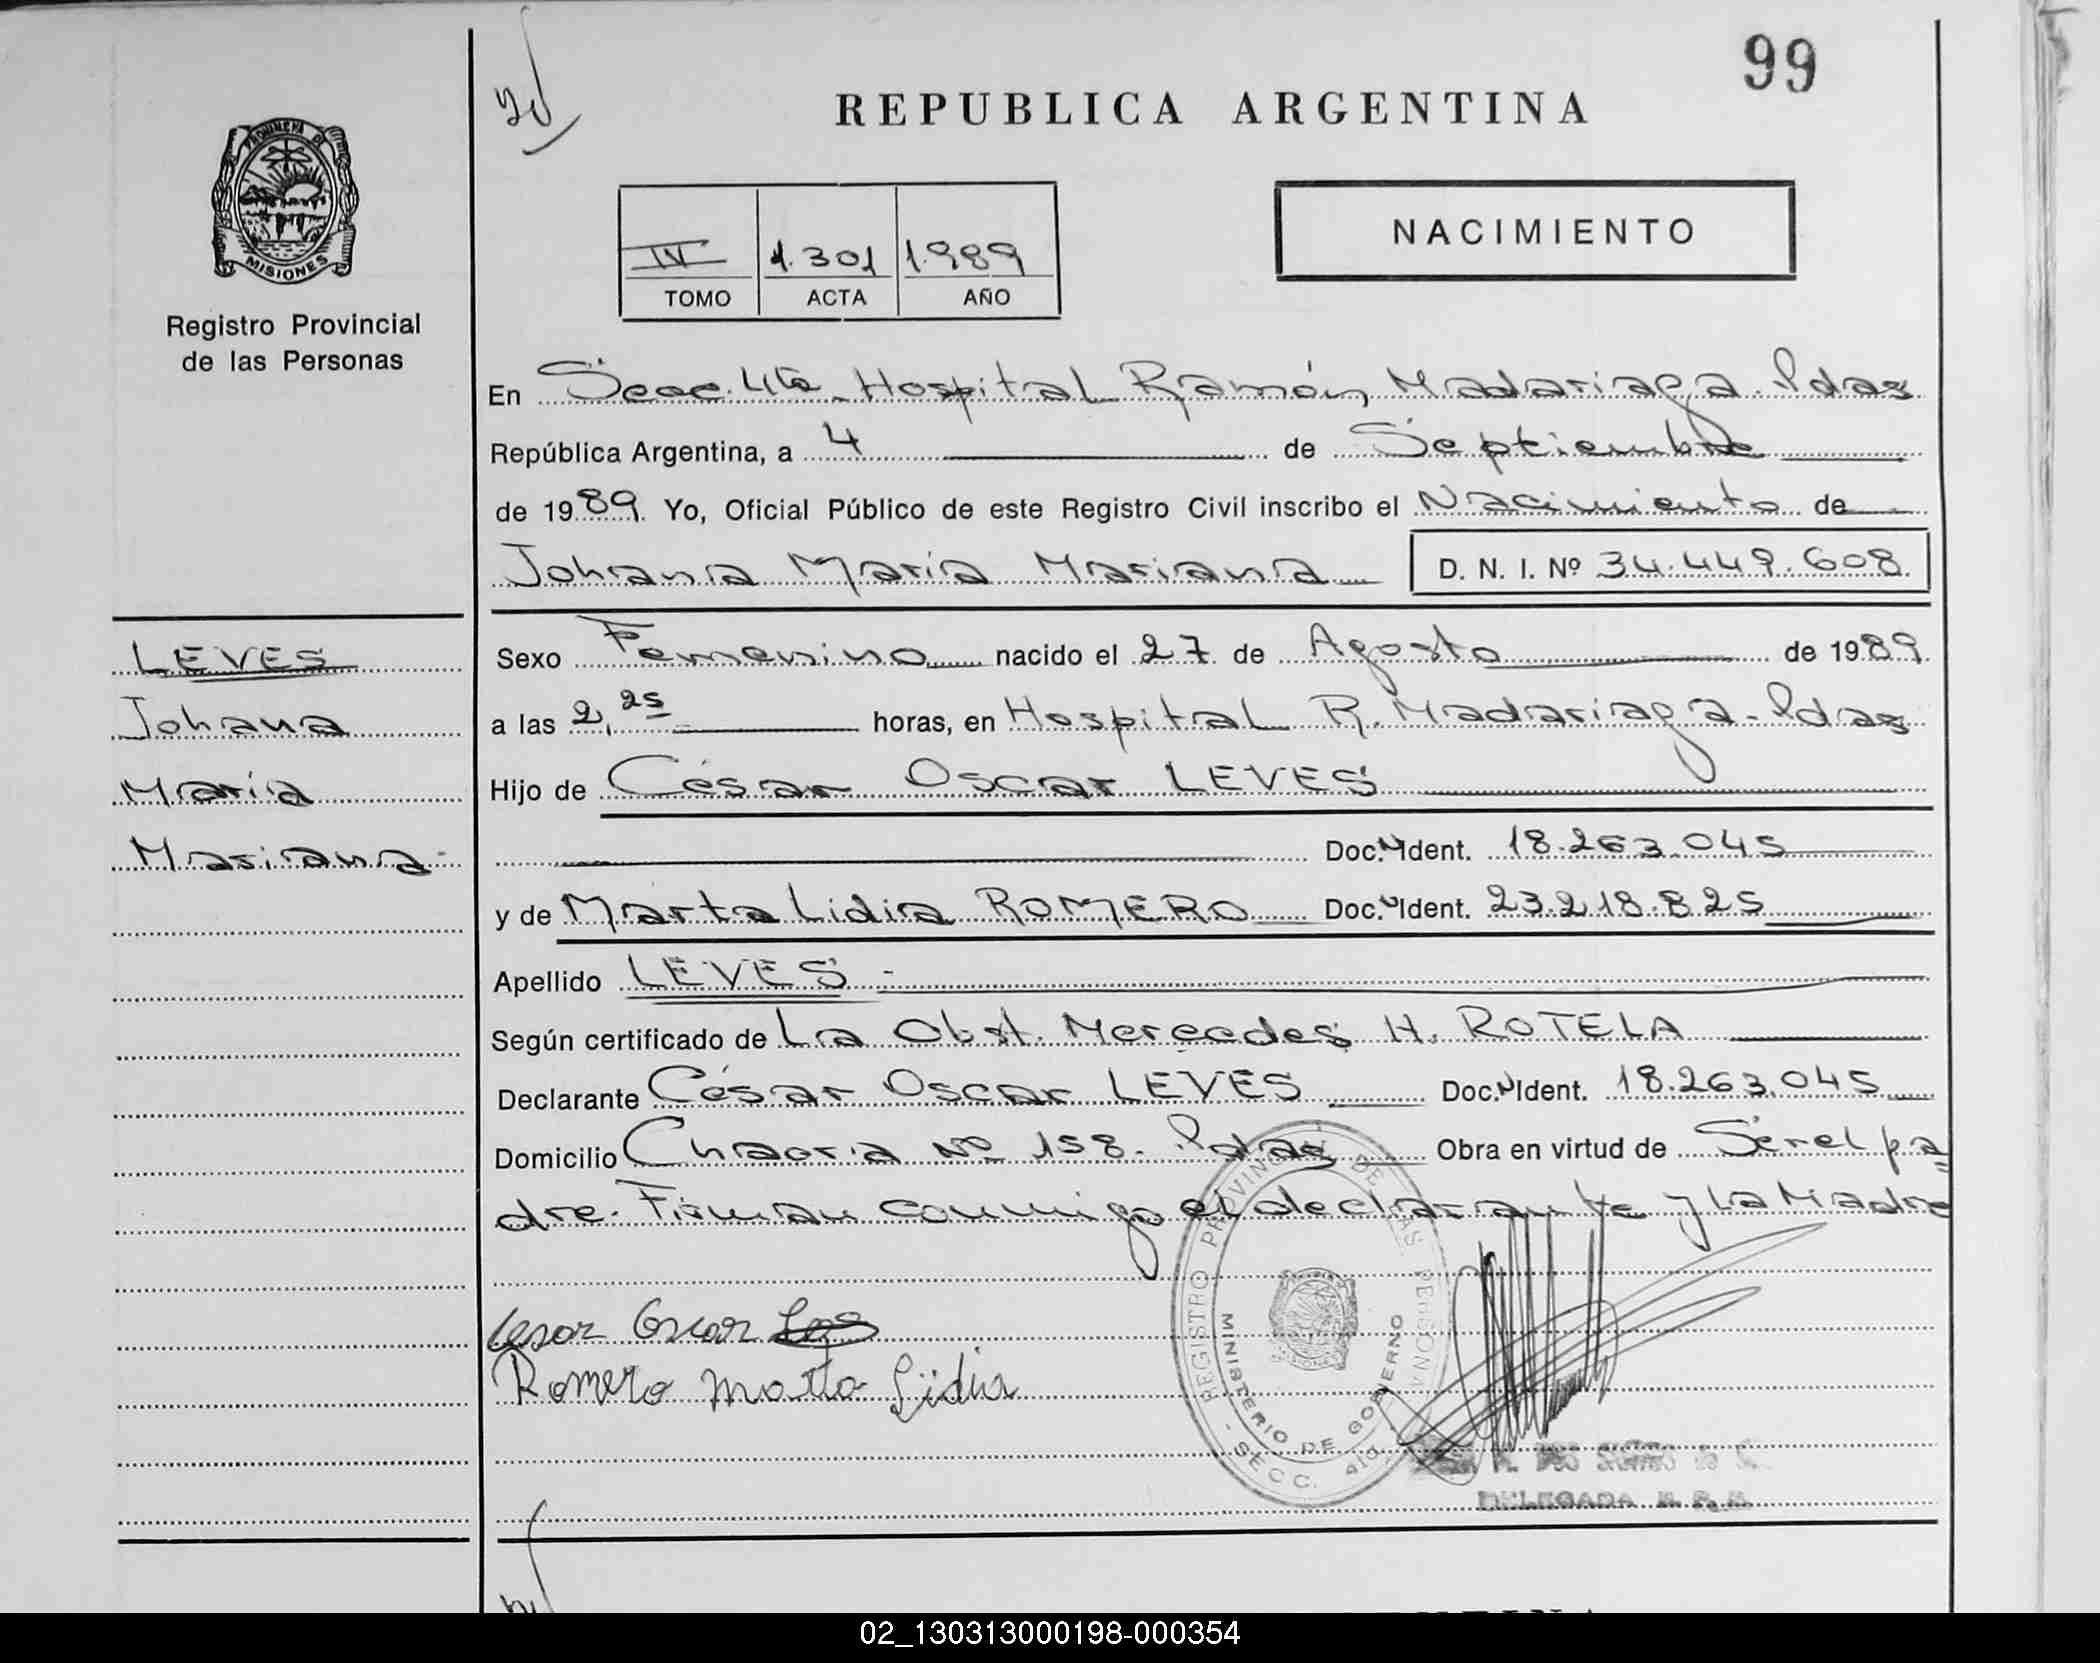 99
REPUBLICA ARGENTINA
PROVINCIA DE
MISIONES
Registro Provincial
de las Personas
IV 1.301 1.989
TOMO ACTA AÑO
NACIMIENTO
En Secc. 4ta. Hospital Ramón Madariaga. Pdas
República Argentina, a 4 de Septiembre
de 1989. Yo, Oficial Público de este Registro Civil inscribo el Nacimiento de
Johana María Mariana D. N. I. Nº 34.449.608
LEVES
Johana
María
Mariana-
Sexo Femenino nacido el 27 de Agosto de 1989.
a las 2,25 horas, en Hospital R. Madariaga - Pdas
Hijo de César Oscar LEVES
Doc. N Ident. 18.263.045
y de Marta Lidia ROMERO Doc. N Ident. 23.218.825
Apellido LEVES -
Según certificado de La Obst. Mercedes H. ROTELA
Declarante César Oscar LEVES Doc. N Ident. 18.263.045
Domicilio Chacria Nº 158. Pdas Obra en virtud de Ser el pa
dre. Firman conmigo el declarante y la Madre
Cesar Oscar
Romero Marta Lidia
REGISTRO PROVINCIAL DE LAS PERSONAS
MINISTERIO DE GOBIERNO
- SECC. 4ta
DELEGADA
02_130313000198-000354